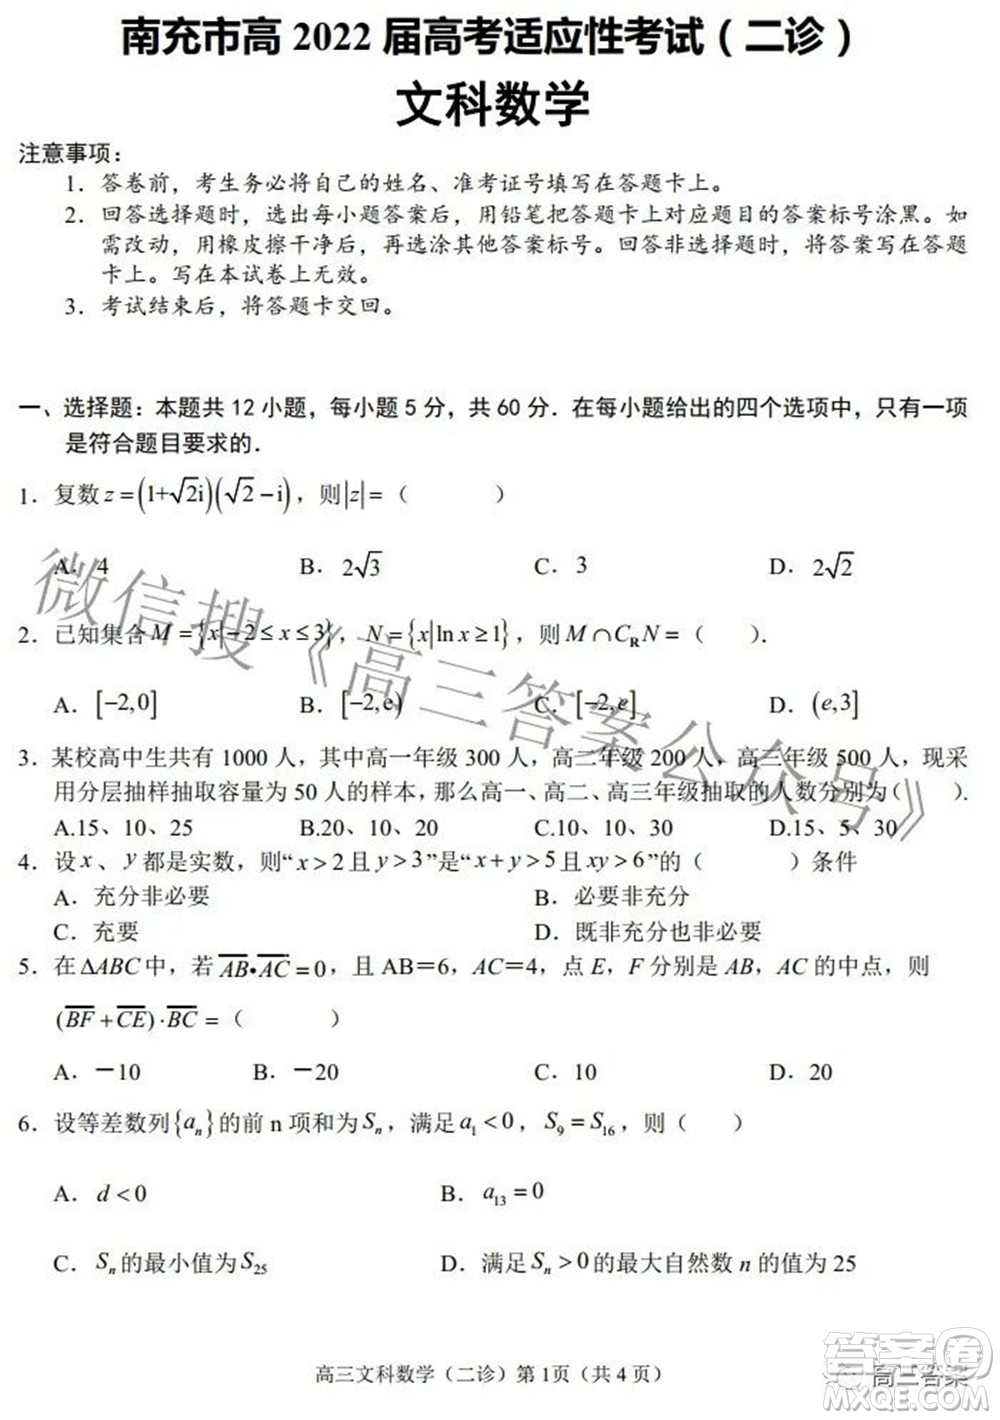 南充市高 2022 届高考适应性考试（二诊）
文科数学
注意事项：
1．答卷前，考生务必将自己的姓名、准考证号填写在答题卡上。
2．回答选择题时，选出每小题答案后，用铅笔把答题卡上对应题目的答案标号涂黑。如
需改动，用橡皮擦干净后，再选涂其他答案标号。回答非选择题时，将答案写在答题
卡上。写在本试卷上无效。
3．考试结束后，将答题卡交回。
一、选择题：本题共 12 小题，每小题 5 分，共 60 分．在每小题给出的四个选项中，只有一项
是符合题目要求的．
1．复数 z=(1+√2i)(√2−i)，则|z|=（　　）
A．4 B．2√3 C．3 D．2√2
2．已知集合 M={x|−2≤x≤3}，N={x|ln x≥1}，则 M∩C_R N=（　　）．
A．[−2,0] B．[−2,e) C．[−2,e] D．(e,3]
3．某校高中生共有 1000 人，其中高一年级 300 人，高二年级 200 人，高三年级 500 人，现采
用分层抽样抽取容量为 50 人的样本，那么高一、高二、高三年级抽取的人数分别为（　　）．
A.15、10、25 B.20、10、20 C.10、10、30 D.15、5、30
4．设 x、y 都是实数，则“x>2 且 y>3”是“x+y>5 且 xy>6”的（　　）条件
A．充分非必要 B．必要非充分
C．充要 D．既非充分也非必要
5．在 ΔABC 中，若 \overline{AB}•\overline{AC}=0，且 AB＝6，AC＝4，点 E，F 分别是 AB，AC 的中点，则
(\overline{BF}+\overline{CE})·\overline{BC}=（　　）
A．－10 B．－20 C．10 D．20
6．设等差数列{a_n}的前 n 项和为 S_n，满足 a_1<0，S_9=S_16，则（　　）
A．d<0 B．a_13=0
C．S_n 的最小值为 S_25 D．满足 S_n>0 的最大自然数 n 的值为 25
高三文科数学（二诊）第 1页（共 4 页）
微信搜《高三答案公众号》
高三答案
答案圈
MXQE.COM